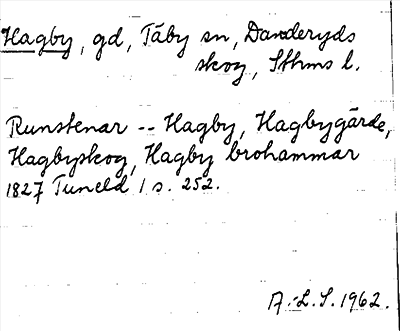 Hagby, gd, Täby sn, Danderyds
skog, Sthms l.
Runstenar -- Hagby, Hagbygärde,
Hagbyskog, Hagby brohammar
1827 Tuneld 1 s. 252.
A.-L.S. 1962.